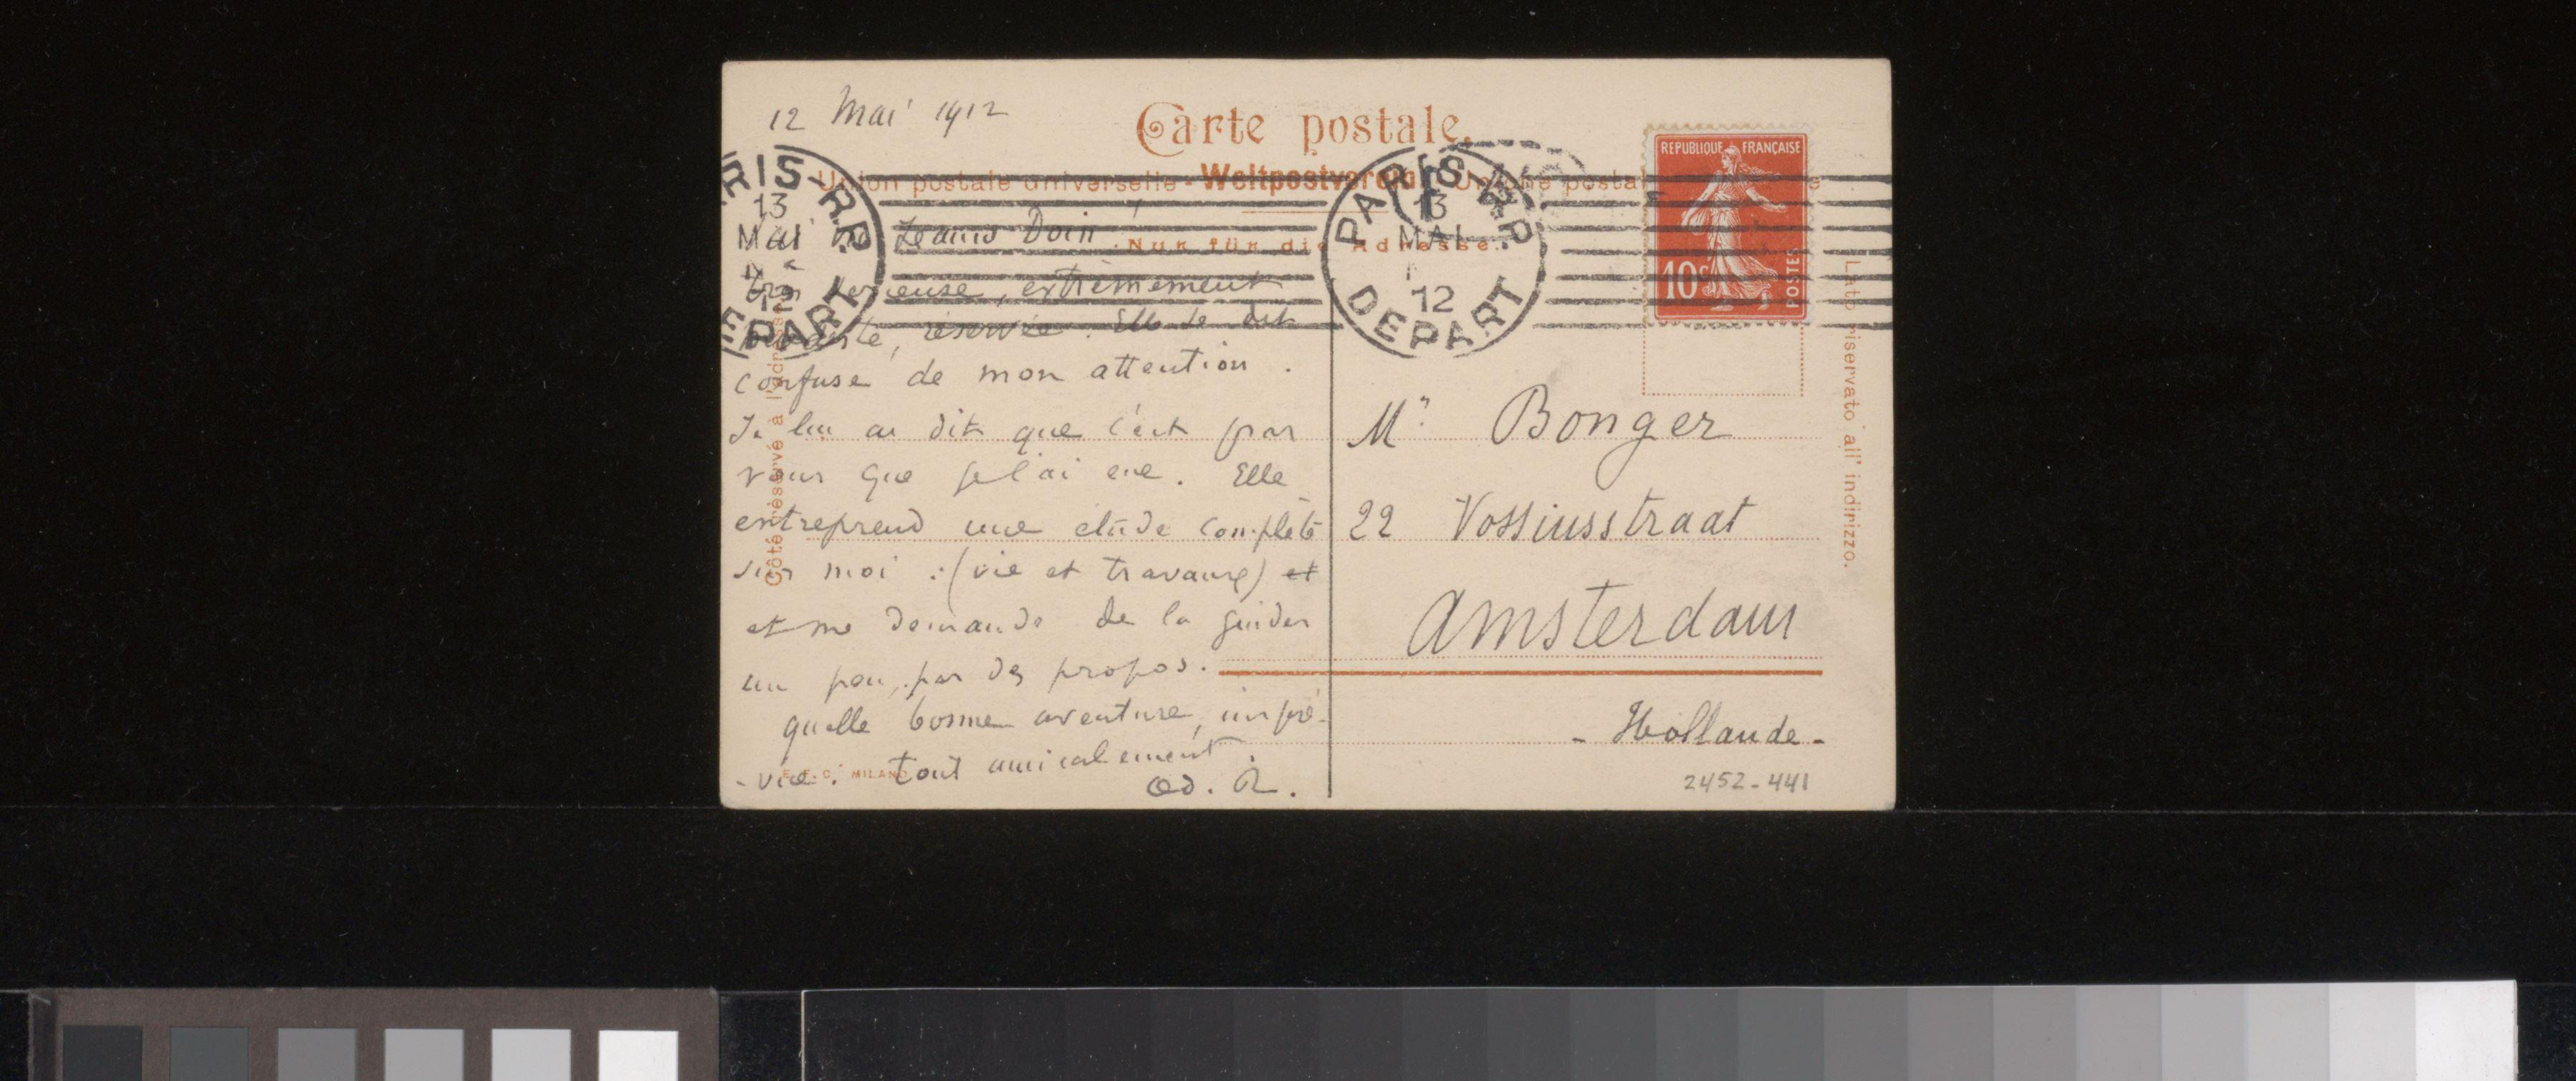 12 Mai 1912
Carte postale.
Union postale universelle - Weltpostverein - Unione postale
Nur für die Adresse.
PARIS R.P.
13
MAI
12
DEPART
RIS-R.P.
13
MAI
12
EPART
REPUBLIQUE FRANÇAISE
10c
POSTES
Jeanne Doin
très sérieuse, extrèmement
réservée. Elle se dit
confuse de mon attention.
Je lui ai dit que c'est par
vous que je l'ai eue. Elle
entreprend une étude complète
sur moi : (vie et travaux) et
et me demande de la guider
un peu, par des propos.
quelle bonne aventure, impré-
-vue. tout amicalement.
Od. R.
Mr Bonger
22 Vossiusstraat
Amsterdam
- Hollande -
2452-441
Côté réservé à l'adresse
Lato riservato all' indirizzo.
E.F.C. MILANO